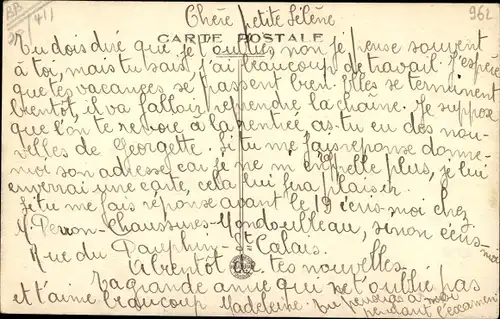 BB
411
962
Chère petite Hélène
CARTE POSTALE
Tu dois dire que je t'oublies non je pense souvent
à toi, mais tu sais j'ai beaucoup de travail. J'espère
que tes vacances se passent bien. Elles se terminent
bientôt, il va falloir reprendre la chaîne. Je suppose
que l'on te revoie à la rentrée as-tu eu des nou-
velles de Georgette. Si tu me fais réponse donne-
moi son adresse car je ne m'en rappelle plus, je lui
enverrai une carte, cela lui fera plaisir.
Si tu me fais réponse avant le 19 écris-moi chez
M. Perron-Chaussures-Mondoubleau, sinon écris-moi
Rue du Dauphin-St Calais.
A bientôt de tes nouvelles.
Ta grande amie qui ne t'oublie pas
et t'aime beaucoup Madeleine. Tu penseras à moi
pendant l'examen